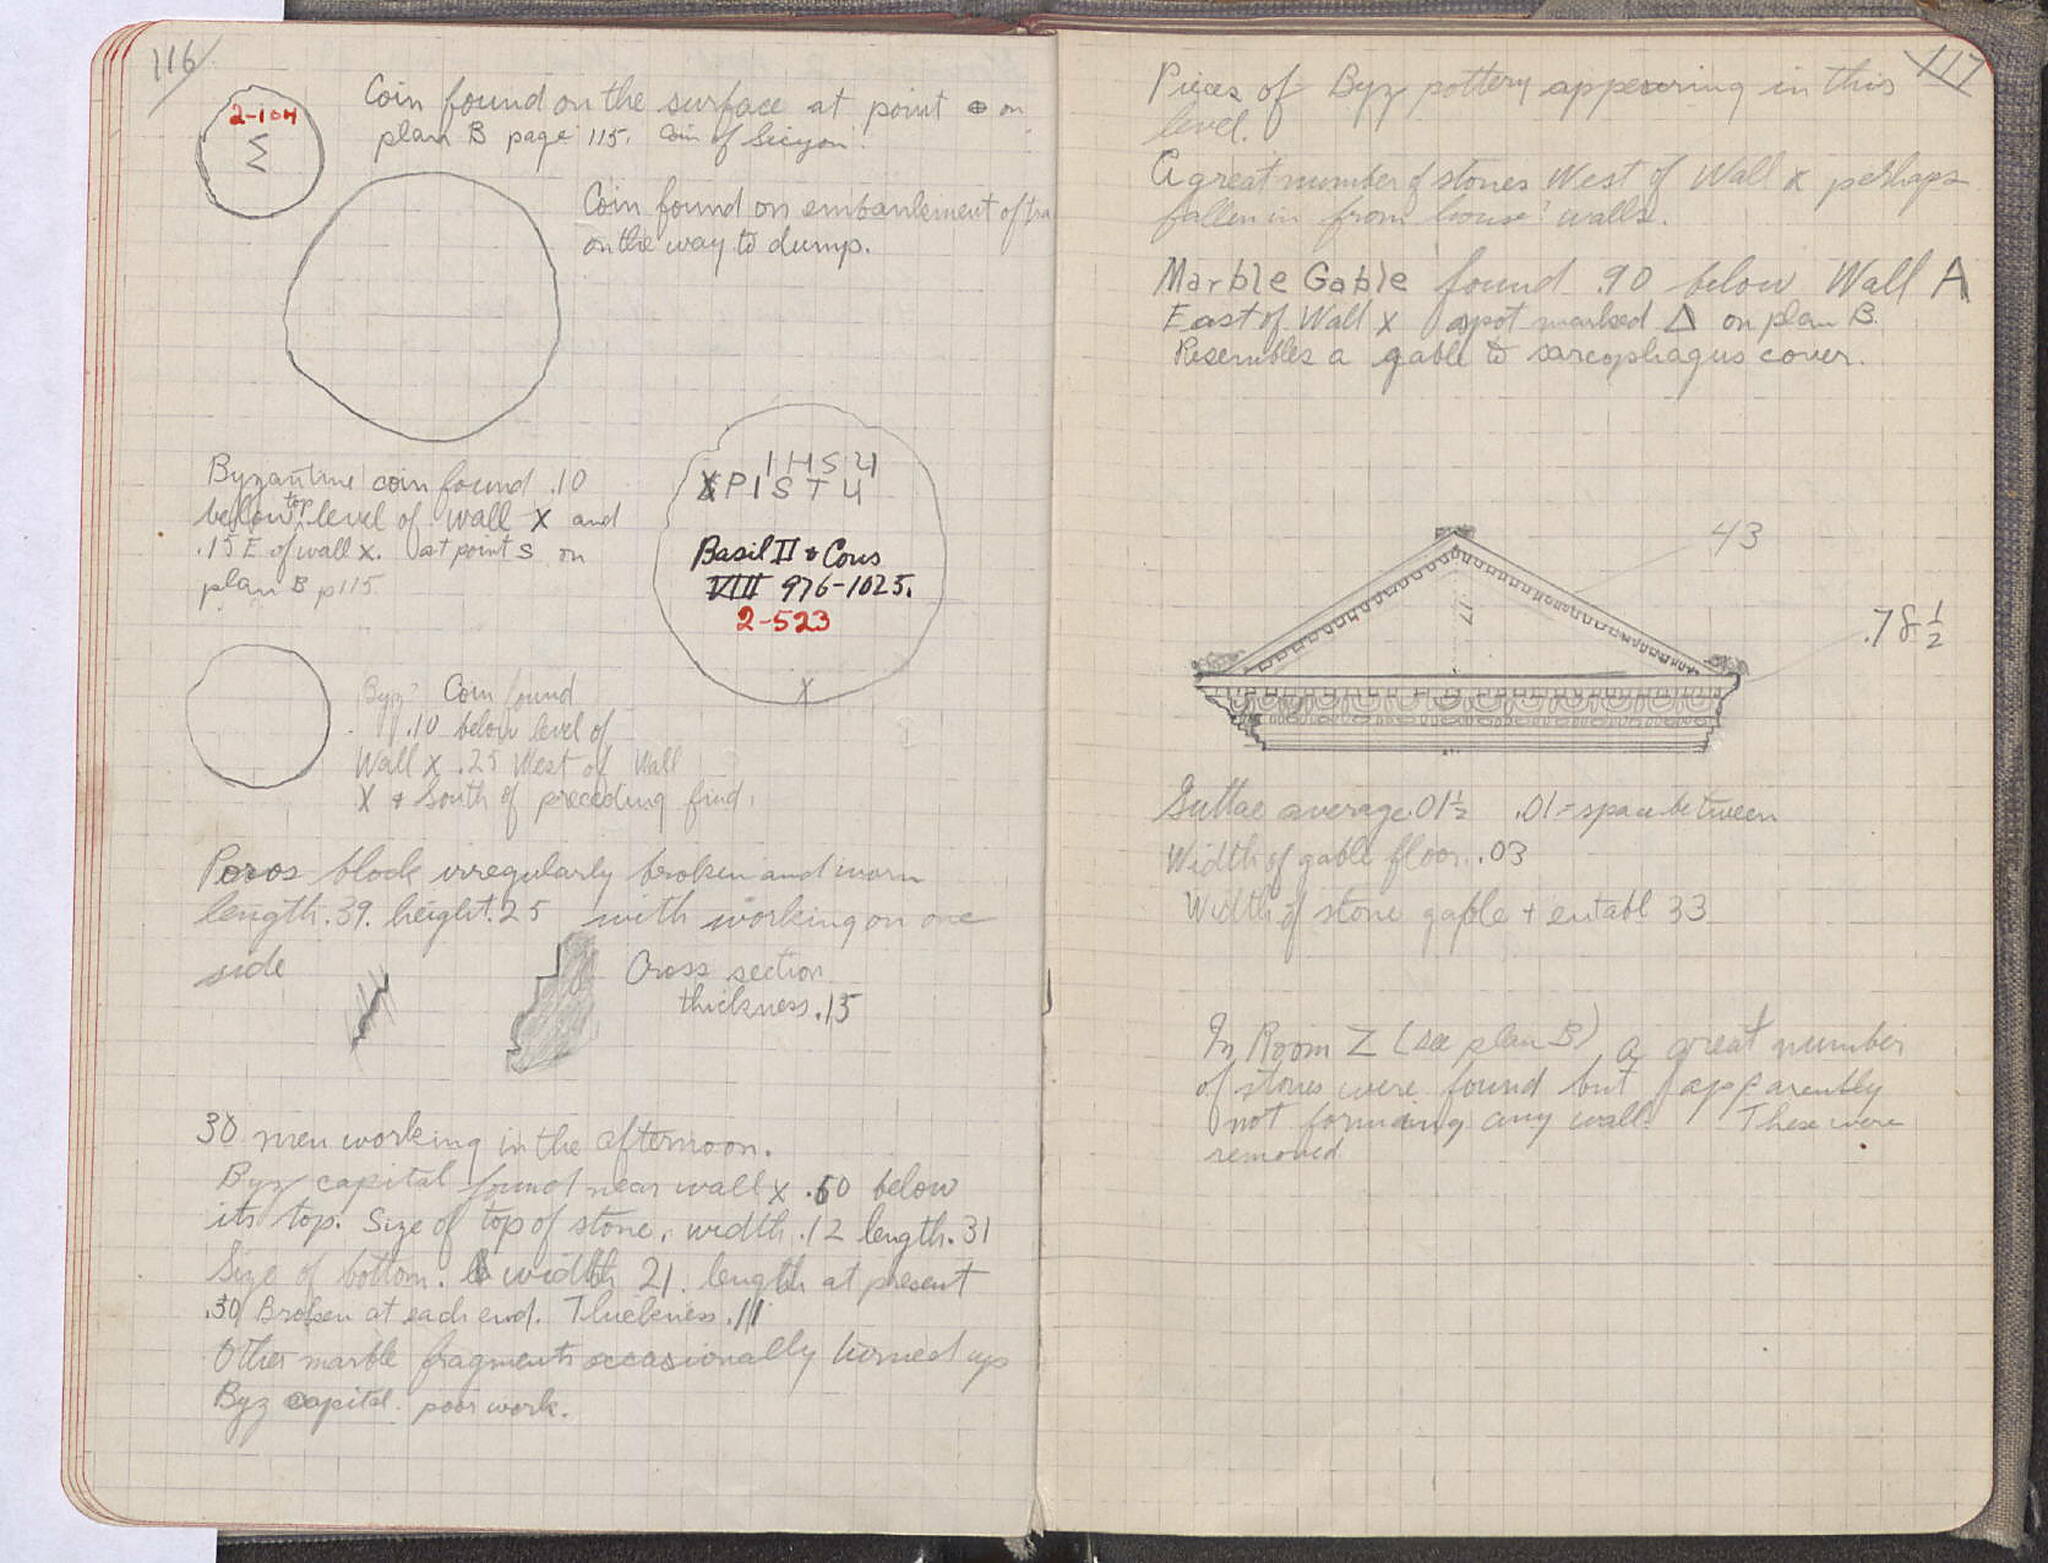 116
2-104
Σ
Coin found on the surface at point ⊕ on
plan B page 115. Coin of Sicyon.
Coin found on embankement of tra
on the way to dump.
Byzantine coin found .10
below top level of wall X and
.15 E of wall X. at point S on
plan B p115.
IHSU
XPISTU
Basil II & Cons
VIII 976-1025.
2-523
X
Byz? Coin found
.10 below level of
Wall X .25 West of Wall
X & South of preceding find.
Poros block irregularly broken and worn
length .39. height .25 with working on one
side
Cross section
thickness .15
30 men working in the afternoon.
Byz capital found near wall X .60 below
its top. Size of top of stone, width .12 length .31
Size of bottom. width 21. length at present
.30 Broken at each end. Thickness .11
Other marble fragments occasionally turned up
Byz capital. poor work.
117
Pieces of Byz pottery appearing in this
level.
A great number of stones West of Wall X perhaps
fallen in from house? walls.
Marble Gable found .90 below Wall A
East of Wall X spot marked Δ on plan B.
Resembles a gable to sarcophagus cover.
43
.17
.78 1/2
Guttae average .01½ .01 = space between
Width of gable floor. .03
Width of stone gable + entabl 33
In Room Z (see plan B) a great number
of stones were found but apparently
not forming any wall. These were
removed